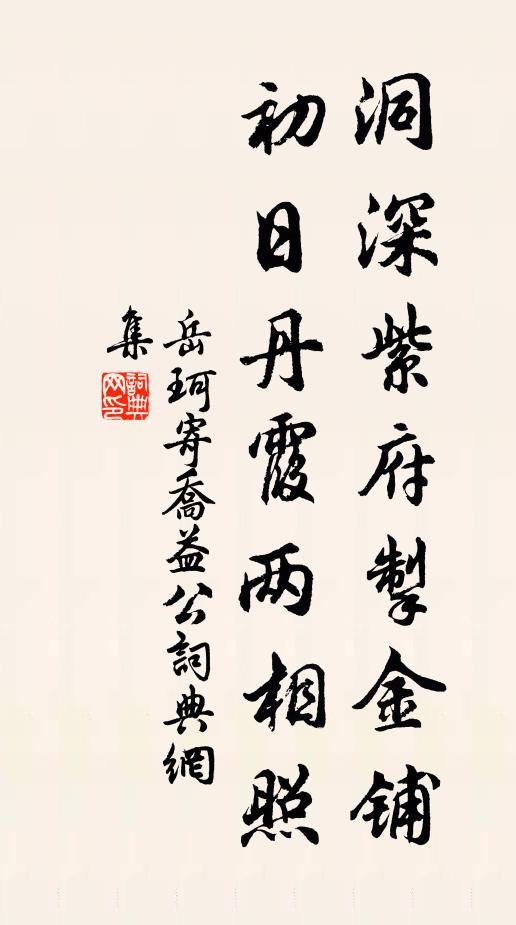 洞深紫府掣金铺
初日丹霞两相照
岳珂寄喬益公詞典網
集
詞典
网印